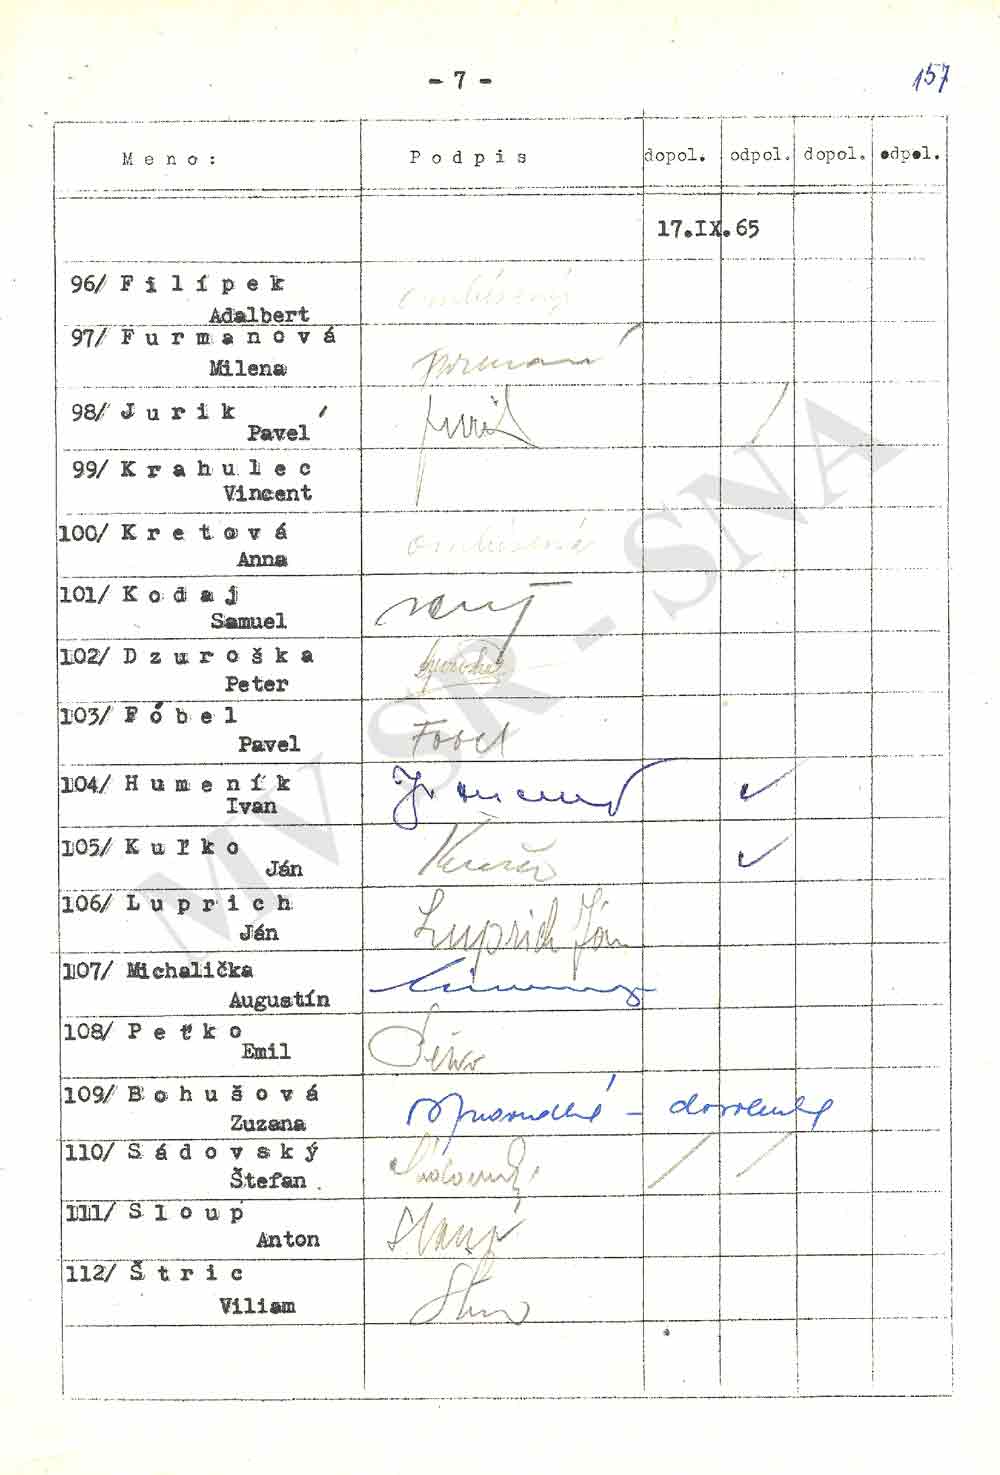 - 7 -
157
Meno: Podpis dopol. odpol. dopol. odpol.
17.IX.65
96/ Filípek
Adalbert
97/ Furmanová
Milena
98/ Jurik
Pavel
99/ Krahulec
Vincent
100/ Kretová
Anna
101/ Kodaj
Samuel
102/ Dzuroška
Peter
103/ Fóbel
Pavel
104/ Humeník
Ivan
105/ Kuľko
Ján
106/ Luprich
Ján
Luprich Ján
107/ Michalička
Augustín
108/ Peťko
Emil
109/ Bohušová
Zuzana
110/ Sádovský
Štefan
111/ Sloup
Anton
112/ Štric
Viliam
MV SR - SNA